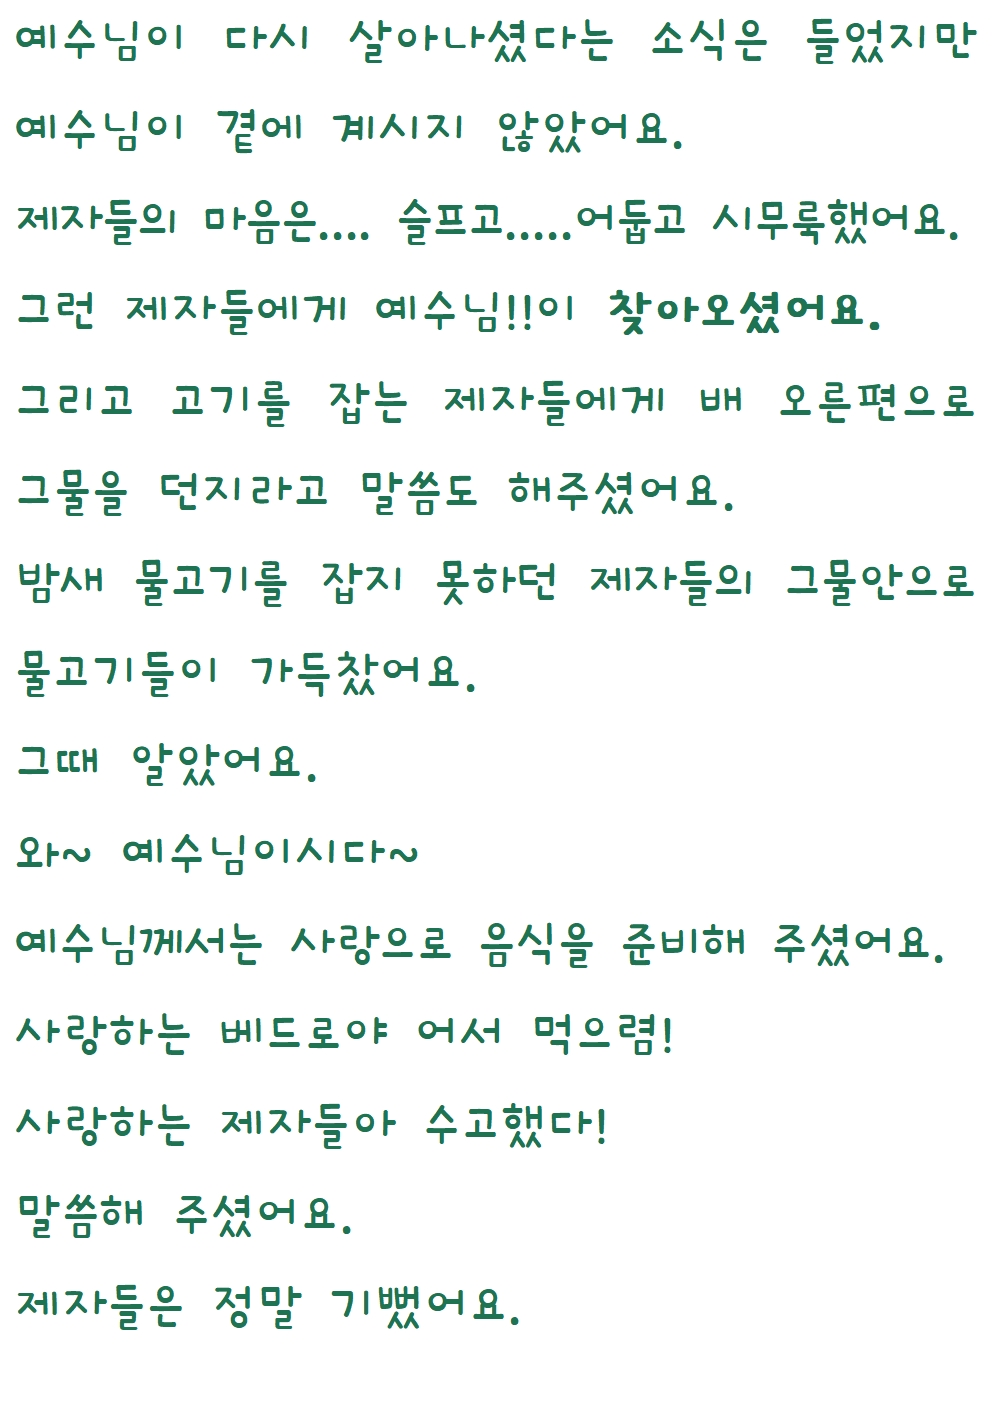 예수님이 다시 살아나셨다는 소식은 들었지만
예수님이 곁에 계시지 않았어요.
제자들의 마음은.... 슬프고.....어둡고 시무룩했어요.
그런 제자들에게 예수님!!이 찾아오셨어요.
그리고 고기를 잡는 제자들에게 배 오른편으로
그물을 던지라고 말씀도 해주셨어요.
밤새 물고기를 잡지 못하던 제자들의 그물안으로
물고기들이 가득찼어요.
그때 알았어요.
와~ 예수님이시다~
예수님께서는 사랑으로 음식을 준비해 주셨어요.
사랑하는 베드로야 어서 먹으렴!
사랑하는 제자들아 수고했다!
말씀해 주셨어요.
제자들은 정말 기뻤어요.